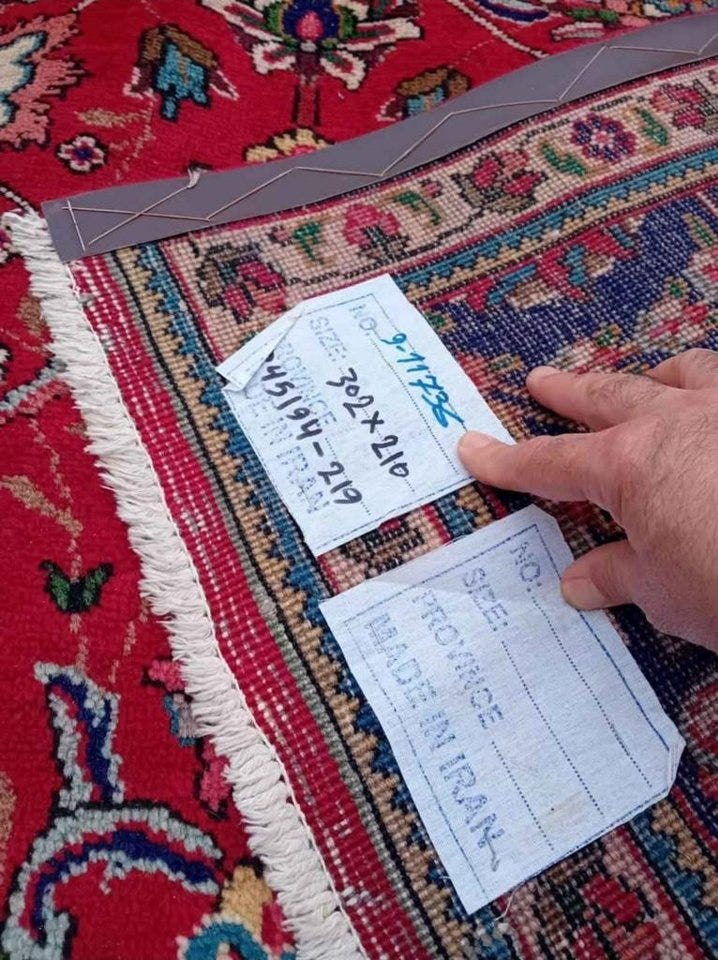 NO. 9-11736
SIZE: 302 x 210
PROVINCE
45194-219
MADE IN IRAN
NO:
SIZE:
PROVINCE
MADE IN IRAN